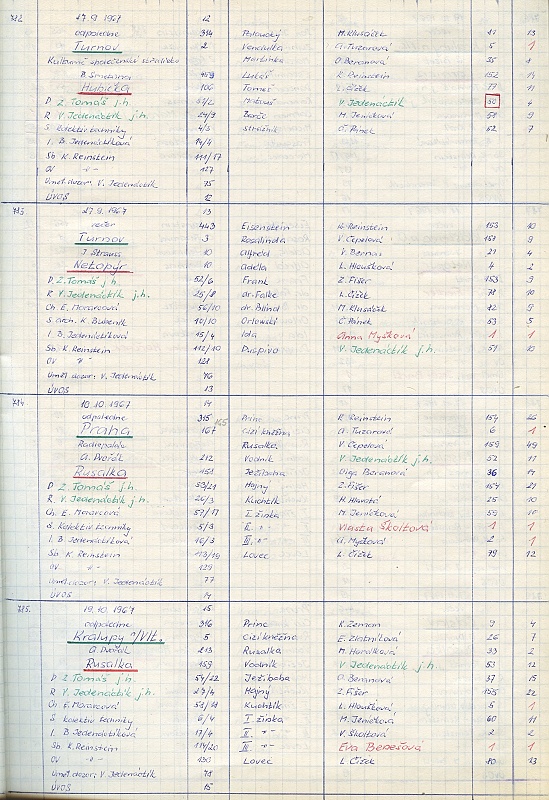 712 27.9.1967 12
odpoledne 314 Palouský M. Klusáček 11 13
Turnov 2 Vendulka A. Tuzarová 5 1
Martinka O. Beranová 35 4
B. Smetana 459 Lukáš K. Reinstein 152 14
Hubička 106 Tomeš L. Čížek 77 11
D Z. Tomáš j.h. 51/2 Matouš V. Jedenáctík 50 4
R V. Jedenáctík j.h. 24/9 Barče M. Jeníčková 58 9
S kolektiv baníky 4/3 strážník Č. Pánek 52 7
I. B. Jedenáctíková 14/4
Sb K. Reinstein 111/17
OV -"- 127
Uměl. dozor: V. Jedenáctík 75
ÚVOS 12
713 27.9.1967 13
večer 443 Eisenstein K. Reinstein 153 10
Turnov 3 Rosalinda V. Čepelová 151 9
J. Strauss 10 Alfréd V. Beran 21 4
Netopýr 10 Adéla L. Hloušková 4 2
D. Z. Tomáš j.h. 52/6 Frank Z. Fišer 153 9
R V. Jedenáctík j.h. 25/8 dr. Falke L. Čížek 78 10
Ch. E. Moravcová 56/10 dr. Blind M. Klusáček 12 9
S. arch. K. Bubeník 10/10 Orlovský Č. Pánek 53 5
I. B. Jedenáctíková 15/4 Ida Anna Myšková 1 1
Sb. K. Reinstein 112/10 Puspiva V. Jedenáctík j.h. 51 10
OV " 128
Uměl. dozor: V. Jedenáctík 76
ÚVOS 13
714 18.10.1967 14
odpoledne 315 Princ K. Reinstein 154 26
Praha 167 165 Cizí kněžna A. Tuzarová 6 1
Radiopalác Rusalka V. Čepelová 159 49
A. Dvořák 212 Vodník V. Jedenáctík j.h. 52 11
Rusalka 158 Ježibaba Olga Beranová 36 14
D Z. Tomáš j.h. 53/21 Hajný Z. Fišer 154 21
R V. Jedenáctík j.h. 26/3 Kuchtík H. Horalová 25 10
Ch. E. Moravcová 57/17 I. žínka M. Jeníčková 59 10
S. kolektiv baníky 5/3 II. -"- Vlasta Školtová 1 1
I. B. Jedenáctíková 16/3 III. -"- A. Myšková 2 1
Sb. K. Reinstein 113/19 Lovec L. Čížek 79 12
OV -"- 129
Uměl. dozor: V. Jedenáctík 77
ÚVOS 14
715. 19.10.1967 15
odpoledne 316 Princ R. Zeman 9 4
Kralupy n/Vlt. 5 Cizí kněžna E. Zikmundová 26 7
A. Dvořák 213 Rusalka M. Horálková 33 2
Rusalka 159 Vodník V. Jedenáctík j.h. 53 12
D Z. Tomáš j.h. 54/22 Ježibaba O. Beranová 37 15
R V. Jedenáctík j.h. 27/4 Hajný Z. Fišer 155 22
Ch. E. Moravcová 58/18 Kuchtík L. Hloušková 5 1
S kolektiv baníky 6/4 I. žínka M. Jeníčková 60 11
I. B. Jedenáctíková 17/4 II. -"- V. Školtová 2 2
Sb. K. Reinstein 114/20 III. -"- Eva Benešová 1 1
OV -"- 130 Lovec L. Čížek 80 13
Uměl. dozor: V. Jedenáctík 78
ÚVOS 15